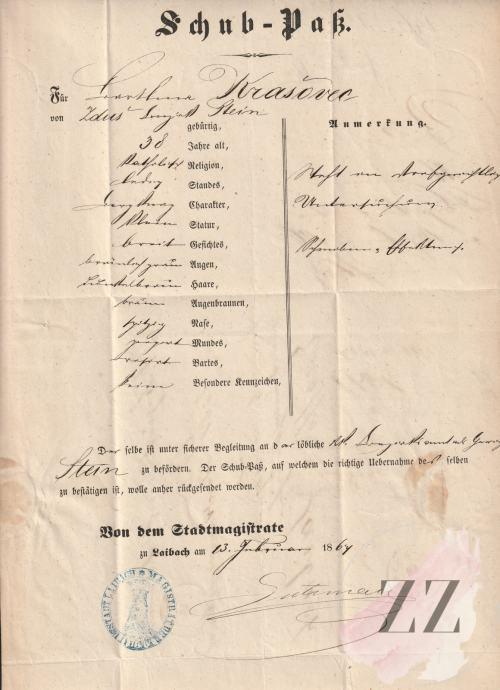 Schub-Paß.
Für Krašovec
von Zduš Bezirk Stein
gebürtig,
Anmerkung.
38 Jahre alt,
Katholisch Religion,
ledig Standes,
Charakter,
klein Statur,
Untersuchung
breit Gesichtes,
Augen,
dunkelbraun Haare,
braun Augenbraunen,
spitzig Nase,
Mundes,
rasirt Bartes,
keine Besondere Kennzeichen,
Der selbe ist unter sicherer Begleitung an das löbliche k.k. Bezirksamt als Gericht
Stein zu befördern. Der Schub-Paß, auf welchem die richtige Uebernahme des selben
zu bestätigen ist, wolle anher rückgesendet werden.
Von dem Stadtmagistrate
zu Laibach am 13. Februar 1864
MAGISTRAT DER HAUPTSTADT LAIBACH
ZZ